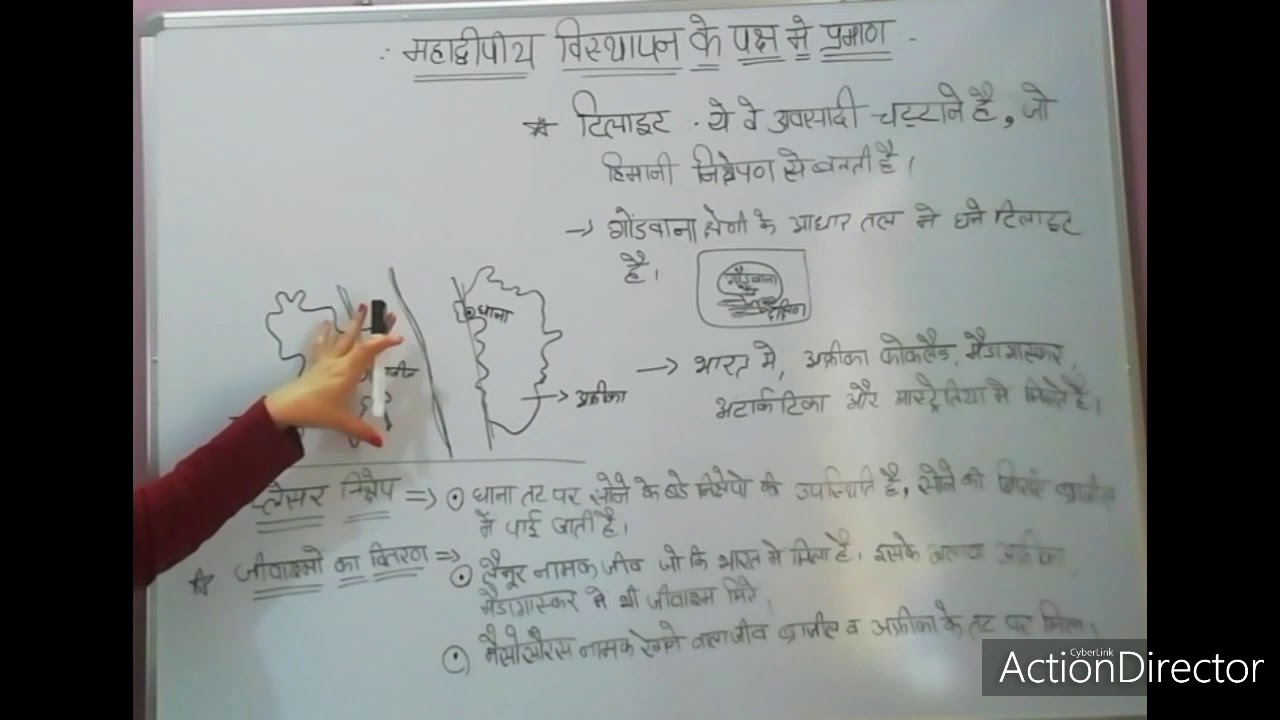 महाद्वीपीय विस्थापन के पक्ष मे प्रमाण
* टिलाइट - ये वे अवसादी चट्टाने है, जो
हिमानी निक्षेपण से बनती है।
→ गोंडवाना श्रेणी के आधार तल मे घने टिलाइट
है।
गोंडवाना
→ भारत मे, अफ्रीका फोकलैंड, मैडागास्कर,
अंटार्कटिका और आस्ट्रेलिया मे मिलते है।
घाना
→ अफ्रीका
प्लेसर निक्षेप ⇒ ⊙ घाना तट पर सोने के बडे निक्षेपो की उपस्थिति है, सोने की शिराएं ब्राजील
में पाई जाती है।
* जीवाश्मो का वितरण ⇒ ⊙ लैमूर नामक जीव जो कि भारत मे मिला है। इसके अलावा अफ्रीका,
मैडागास्कर मे भी जीवाश्म मिले,
⊙ मैसोसौरस नामक रेंगने वाला जीव ब्राजील व अफ्रीका के तट पर मिला,
CyberLink
ActionDirector